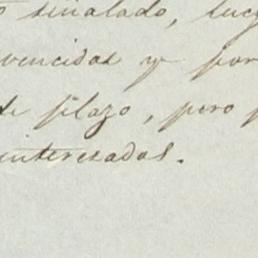 señalado, luego
vencidos y por
plazo, pero
interesados.